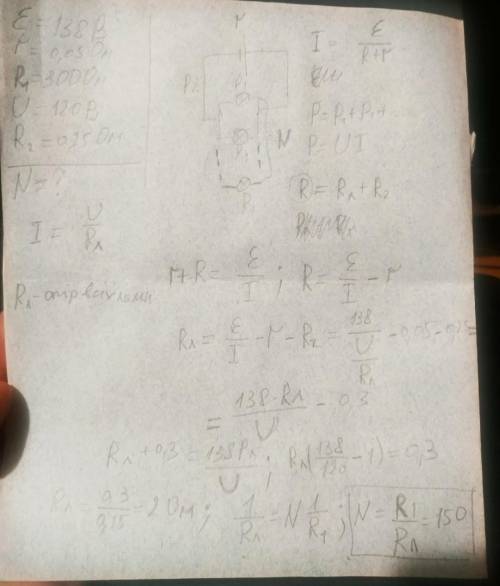 ε = 138 В
r = 0,05 Ом
R₁ = 300 Ом
U = 120 В
R₂ = 0,25 Ом
N = ?
I = U/Rл
Rл - лами
r
R₂
R₁
N
R₁
R₁
I = ε/(R+r)
P = P₁ + P₁ + ...
P = UI
R = Rл + R₂
r + R = ε/I ; R = ε/I - r
Rл = ε/I - r - R₂ = 138/(U/Rл) - 0,05 - 0,25 =
= 138·Rл/U - 0,3
Rл + 0,3 = 138Rл/U ; Rл(138/120 - 1) = 0,3
Rл = 0,3/0,15 = 2 Ом ; 1/Rл = N 1/R₁ ; N = R₁/Rл = 150